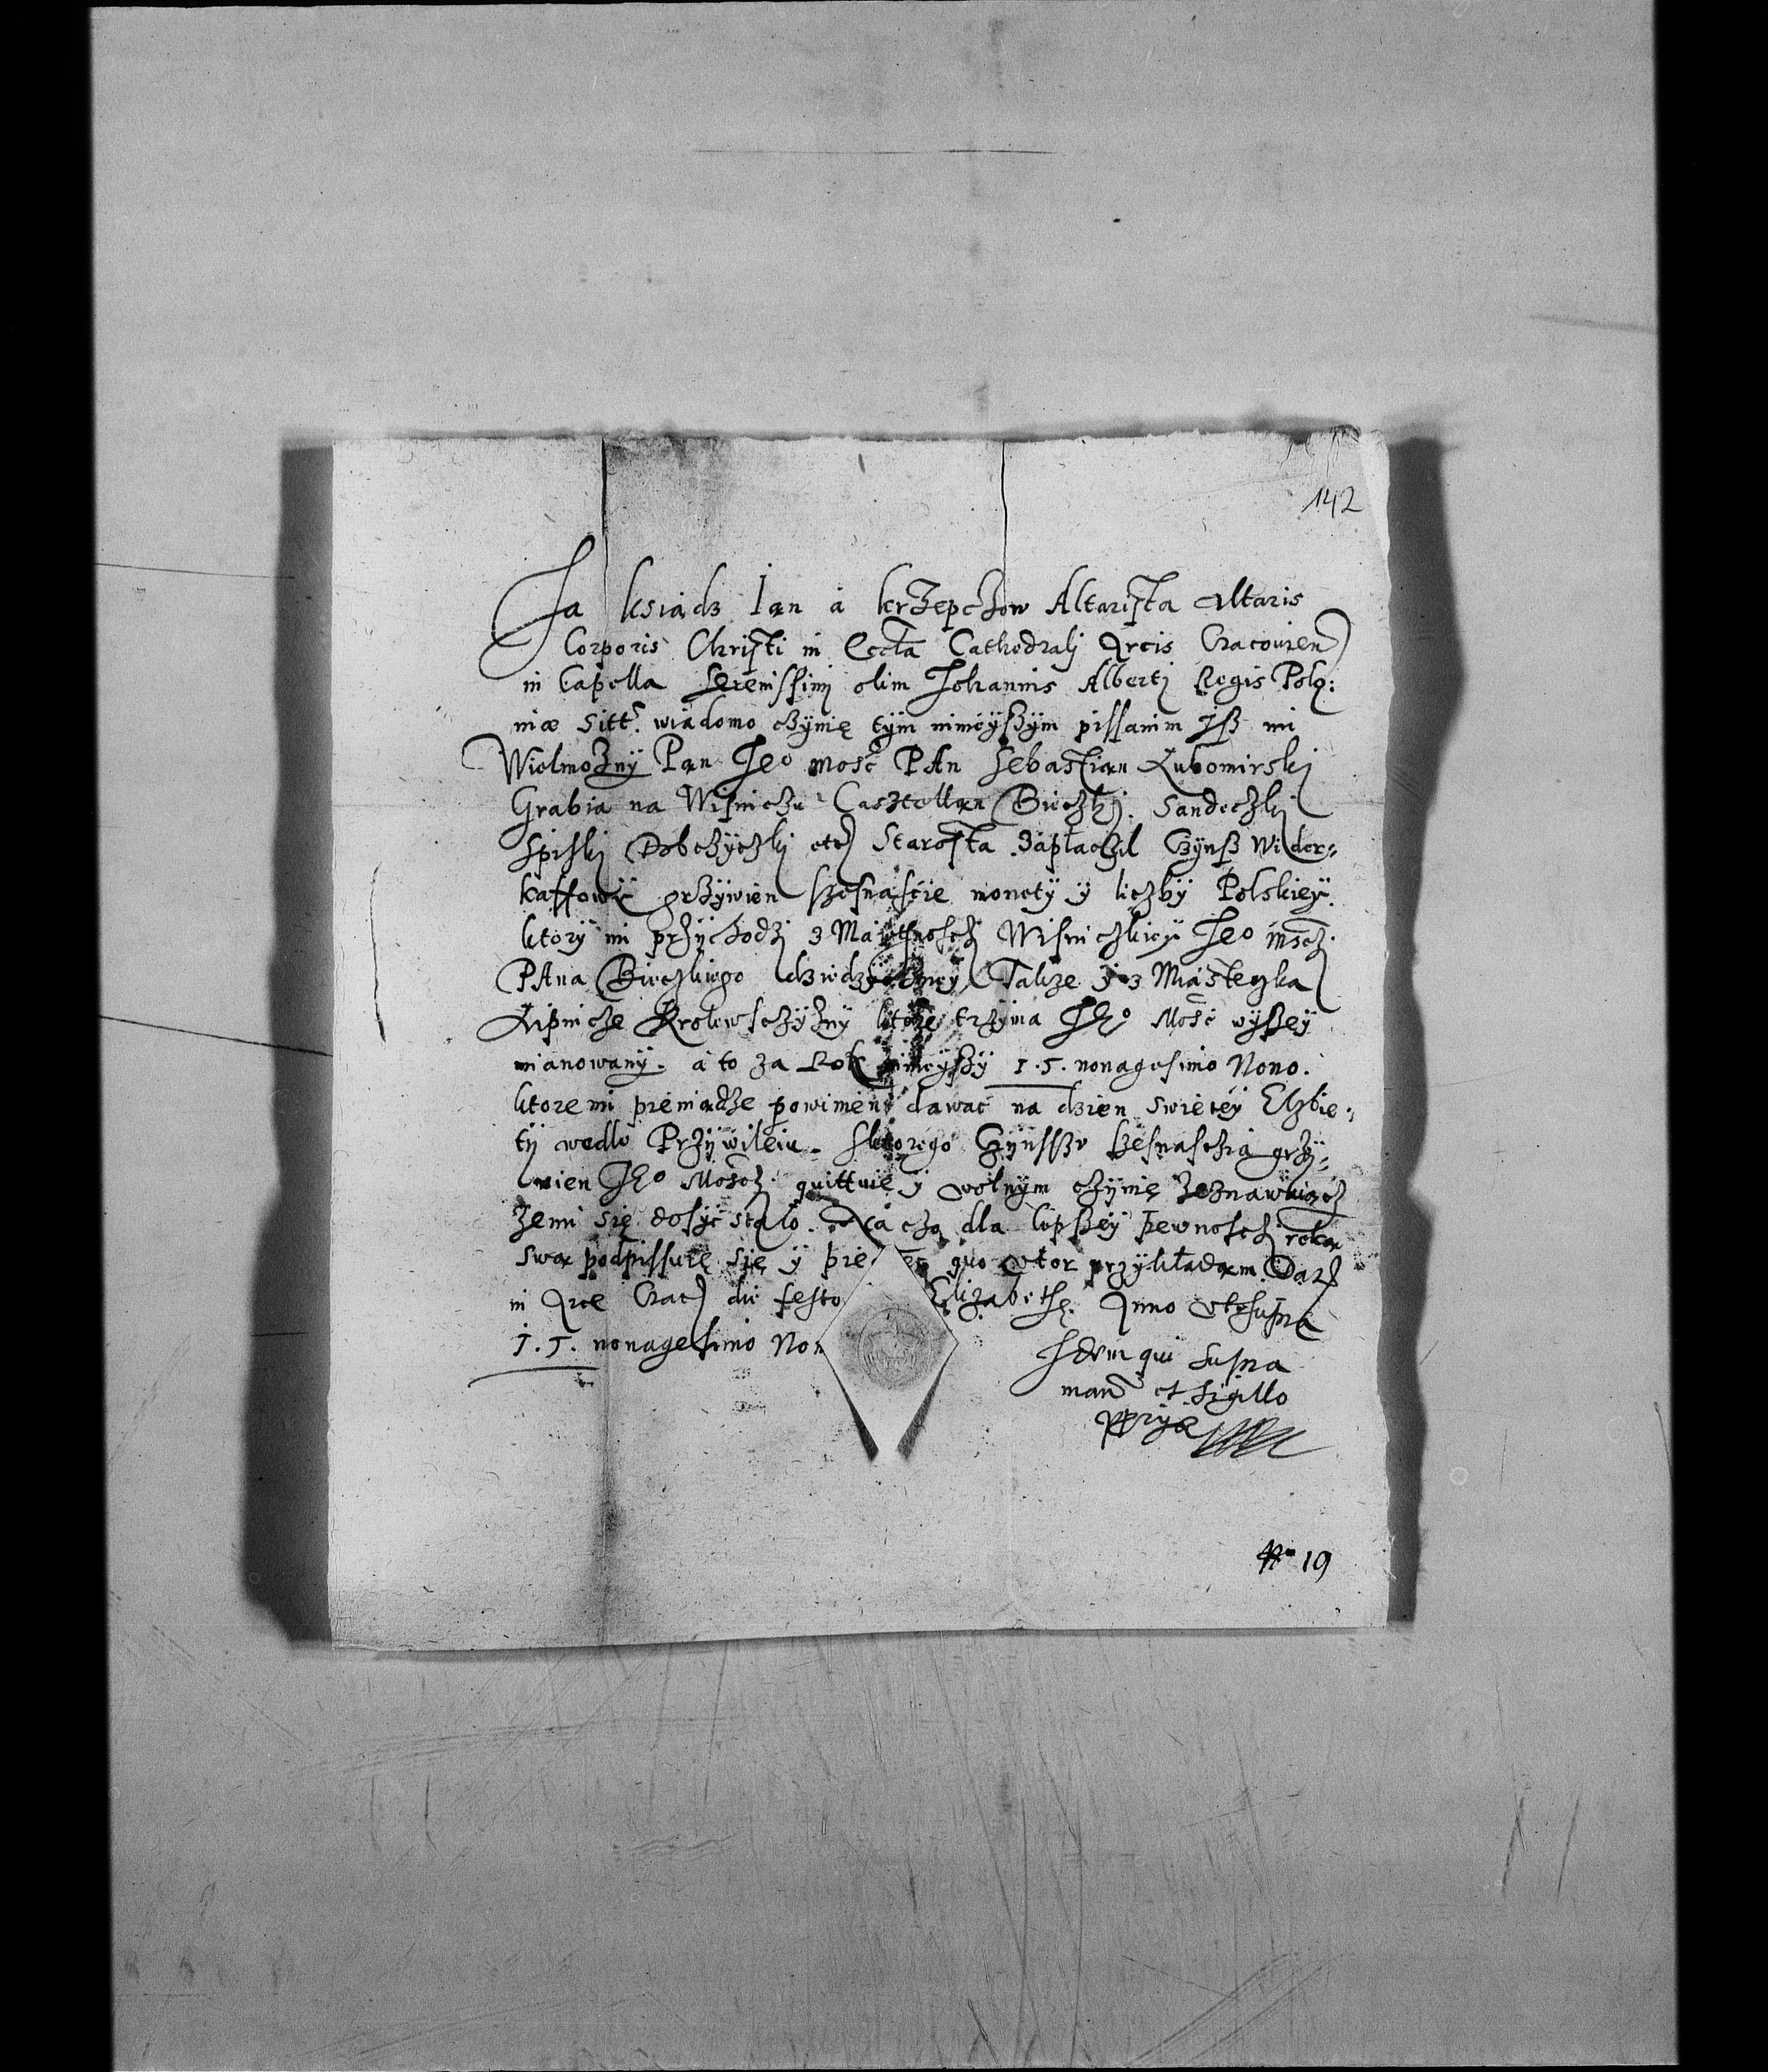 142
Ja ksiądz Jan à Krzepchow Altarista altaris
Corporis Christi in Eccla Cathedrali Arcis Cracovien
in Capella Serenissimi olim Johannis Alberti Regis Polo:
niæ sitt. wiadomo czynię tÿm ninieÿßÿm pissanim Jß mi
Wielmoznÿ Pan Jeo mość PAn Sebastian Lubomirski
Grabia na Wisniczu Casztellan Bieczki. Sandeczki
Spiski Dobczÿczki etc Starosta zaplaczil Czÿnß Wider:
kaffowÿ grzÿwien szesnaście monetÿ ÿ liczbÿ Polskieÿ.
ktorÿ mi przÿchodzi z Maiętnosczi Wisniczkieÿ Jeo mscz.
PAna Bieczkiego dziedzicznéÿ Takze ÿ z Miasteczka
Lipnicze Krolewsczÿznÿ ktore trzÿma Jeo Mość wÿßeÿ
mianowanÿ. à to za Rok ninieÿßÿ 1.5. nonagesimo Nono.
ktore mi pieniądze powinien dawać na dzien swietéÿ Elzbie:
tÿ wedlo Przÿwileiu. sktorego Czÿnsßu szesnasczią grzÿ:
wien Jeo Mosczi quittuię ÿ wolnÿm czÿnię zeznawaiącz
ze mi się dosÿć stalo. Na czo dla lepßéÿ pewnosczi ręką
swą podpissuię się ÿ pie quo utor przÿkładam. Dat
in Arce Crac die festo Elizabethę. Anno utsupra
1.5. nonagesimo Non
Idem qui supra
man et sigillo
pprija
Nro 19